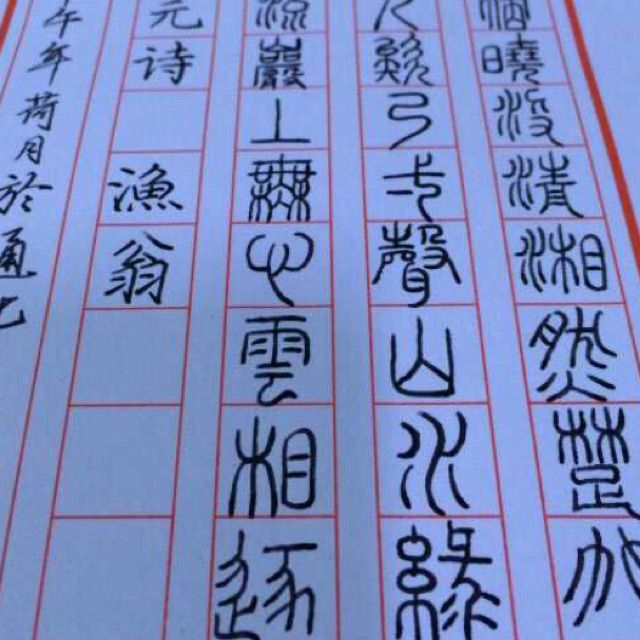 曉汲清湘然楚竹
人欸乃弌聲山水綠
流巖上無心雲相逐
元诗 漁翁
午年荷月於通